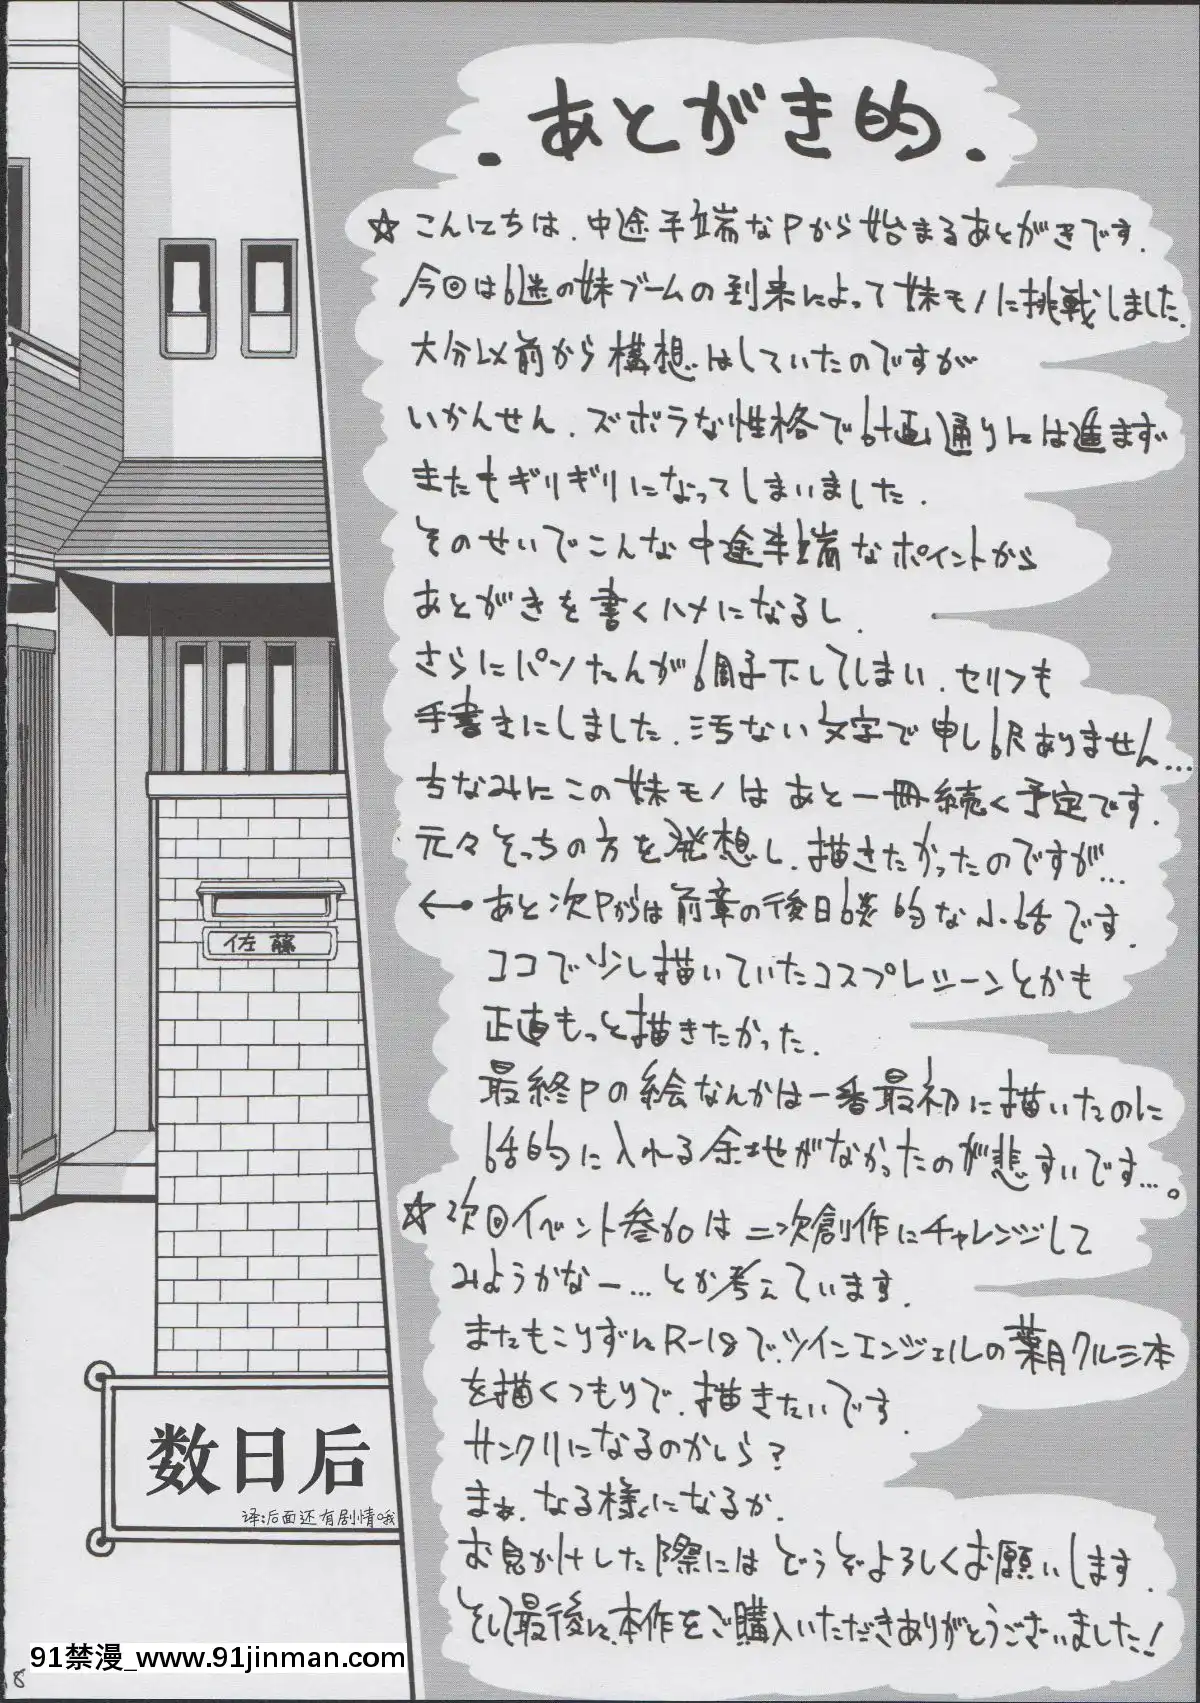 ・あとがき的・
☆こんにちは、中途半端なPから始まるあとがきです。
今回は謎の妹ブームの到来によって妹モノに挑戦しました。
大分以前から構想はしていたのですが
いかんせん、ズボラな性格で計画通りには進まず
またもギリギリになってしまいました。
そのせいでこんな中途半端なポイントから
あとがきを書くハメになるし、
さらにパソたんが調子下してしまい、セリフも
手書きにしました。汚ない文字で申し訳ありません…
ちなみにこの妹モノはあと一冊続く予定です。
元々そっちの方を発想し、描きたかったのですが…
←あと次Pからは前章の後日談的な小話です。
ココで少し描いていたコスプレシーンとかも
正直もっと描きたかった。
最終Pの絵なんかは一番最初に描いたのに
話的に入れる余地がなかったのが悲すいです…。
☆次回イベント参加は二次創作にチャレンジして
みようかなー…とか考えています。
またもこりずにR-18で、ツインエンジェルの葉月クルミ本
を描くつもりで、描きたいです。
サンクリになるのかしら?
まぁ、なる様になるか。
お見かけした際にはどうぞよろしくお願いします。
そして最後に、本作をご購入いただきありがとうございました!
佐藤
数日后
译:后面还有剧情哦
91禁漫_www.91jinman.com
8